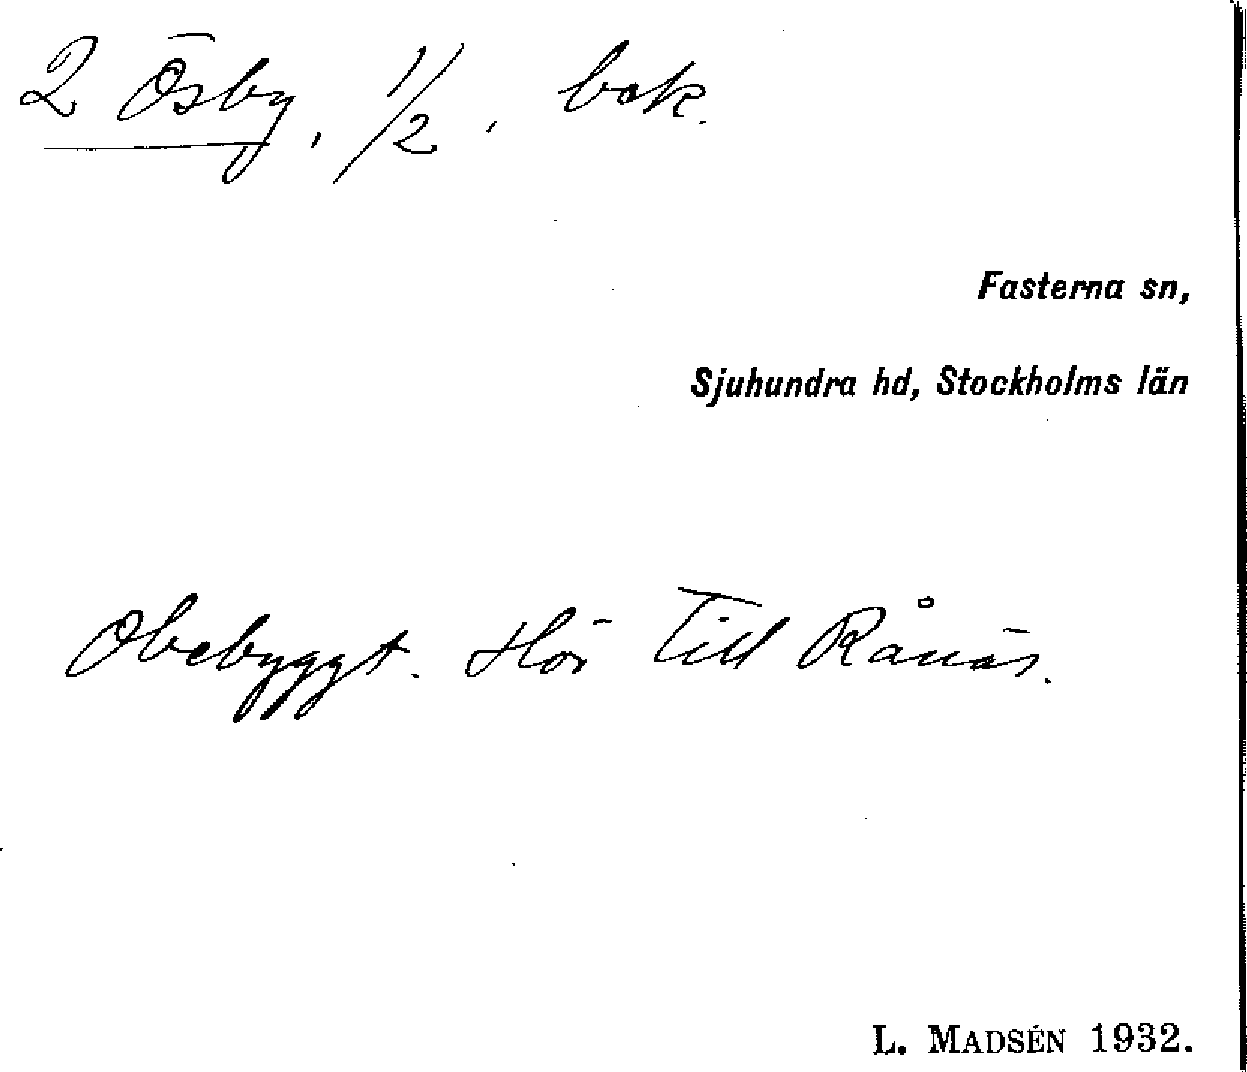 2 Ösby, 1/2, bok.
Fasterna sn,
Sjuhundra hd, Stockholms län
Obebyggt. Hör till Rånäs.
L. MADSÉN 1932.